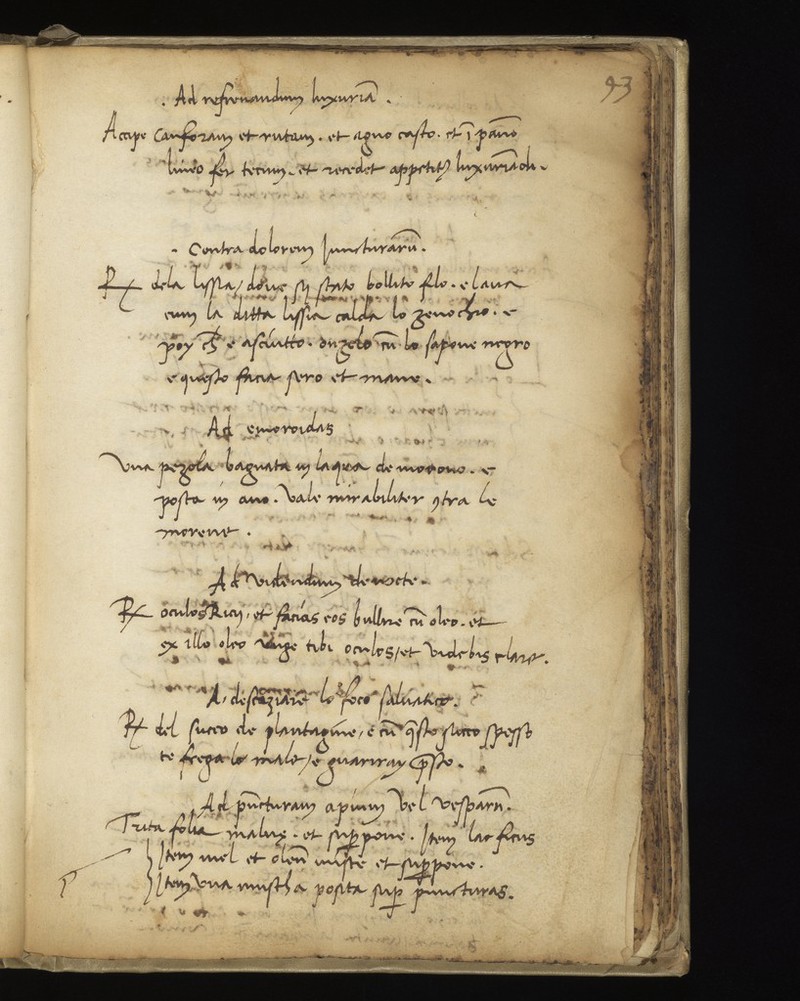 93
. Ad refrenandum luxuriā .
Accipe Canforam et rutam . et agno casto . et ī pāno
lineo fer tecum . et recedet appetitꝰ luxuriādi .
. Contra dolorem Juncturarū .
℞ dela lissia / dove sij stato bollito filo . e lava
cum la ditta lissia calda lo zenochio . e
poy ch̄ e asciutto . onzelo cū lo sapone negro
e questo facia sero et mane .
Ad emoroidas
Una pezola bagnata in laqua de . e
posta in ano . Vale mirabiliter ꝯtra le
morene .
Ad videndum de nocte .
℞ oculos / et facias eos bullire cū oleo . et
ex illo oleo unge tibi oculos / et videbis clare .
A descaziare lo foco salvatico .
℞ del succo de plantagine / e cū q̄sto succo spesso
te frega lo male / e guariray p̄sto .
Ad pūcturam apium vel vesparū .
Trita folia malvę . et suꝑpone . Item lac ficus
Item mel et oleū misce et suꝑpone .
Item una muscha posita suꝑ puncturas .